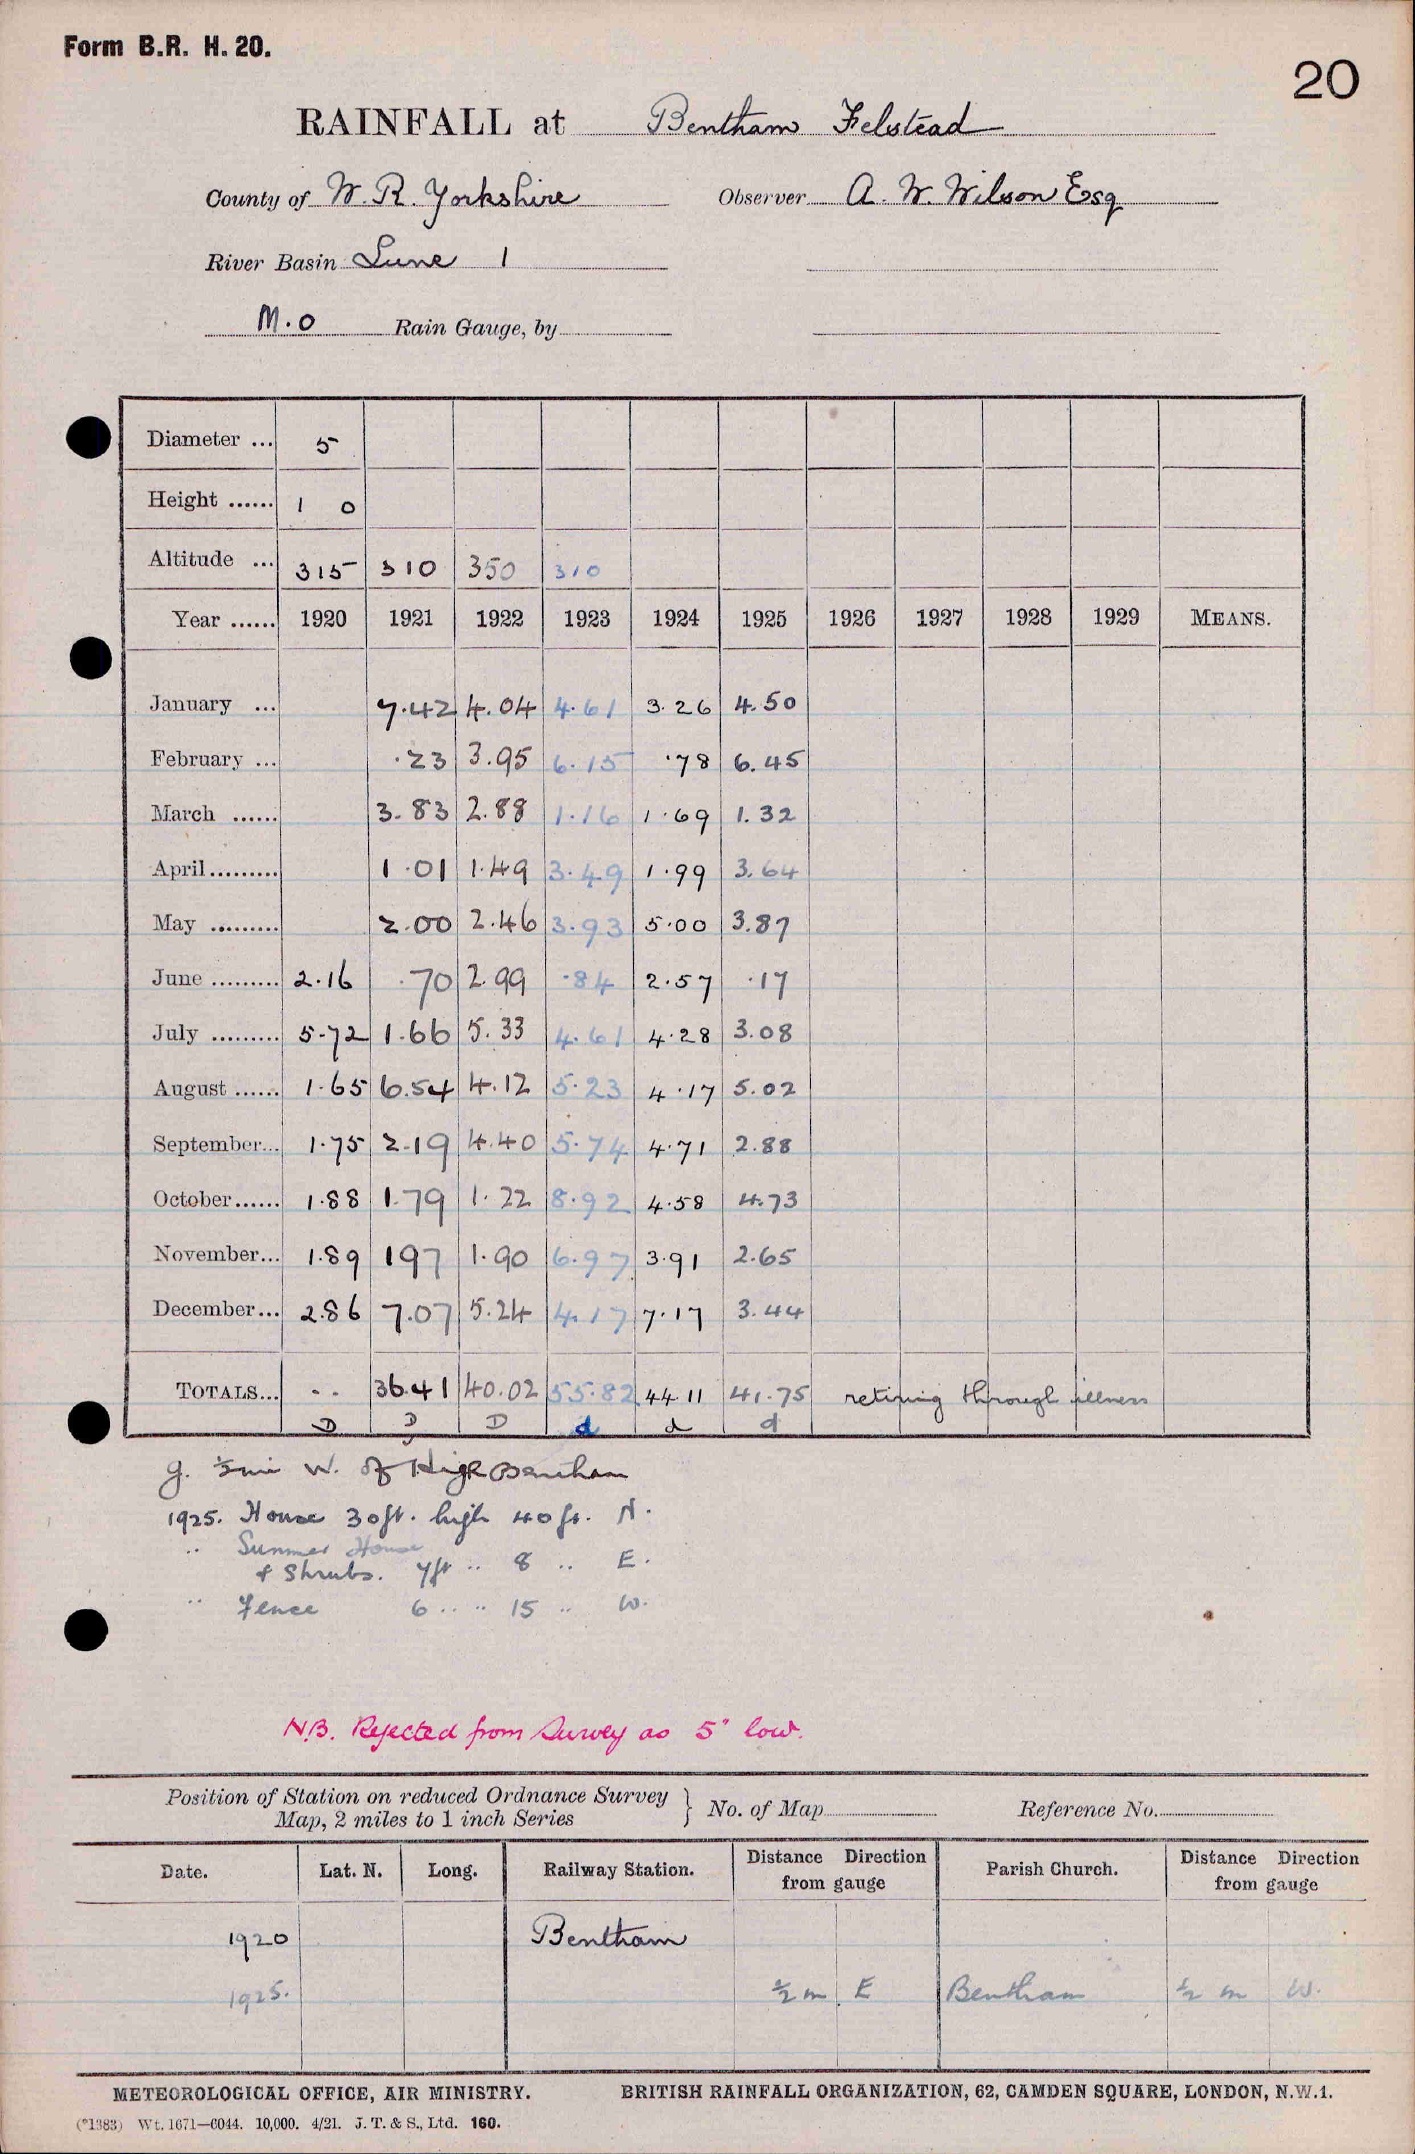 Form B.R. H. 20.
20
RAINFALL at Bentham Felstead
County of W. R. Yorkshire Observer A. W. Wilson Esq
River Basin Lune 1
M.O Rain Gauge, by
Diameter ... 5
Height ...... 1 0
Altitude ... 315 310 350 310
Year ...... 1920 1921 1922 1923 1924 1925 1926 1927 1928 1929 MEANS.
January ... 7.42 4.04 4.61 3.26 4.50
February ... .23 3.95 6.15 .78 6.45
March ...... 3.83 2.88 1.16 1.69 1.32
April......... 1.01 1.49 3.49 1.99 3.64
May ......... 2.00 2.46 3.93 5.00 3.87
June ......... 2.16 .70 2.99 .84 2.57 .17
July ......... 5.72 1.66 5.33 4.61 4.28 3.08
August ...... 1.65 6.54 4.12 5.23 4.17 5.02
September... 1.75 2.19 4.40 5.74 4.71 2.88
October...... 1.88 1.79 1.22 8.92 4.58 4.73
November... 1.89 197 1.90 6.97 3.91 2.65
December... 2.86 7.07 5.24 4.17 7.17 3.44
TOTALS... .. 36.41 40.02 55.82 44.11 41.75 retiring through illness
D D D d d d
W. of High Bentham
1925. House 30ft. high 40 ft. N.
" Summer House
& Shrubs. 7ft " 8 " E.
" Fence 6 " " 15 " W.
N.B. Rejected from Survey as 5" low.
Position of Station on reduced Ordnance Survey
Map, 2 miles to 1 inch Series } No. of Map Reference No.
Date. Lat. N. Long. Railway Station. Distance Direction from gauge Parish Church. Distance Direction from gauge
1920 Bentham
1925. ½ m E Bentham ½ m W.
METEOROLOGICAL OFFICE, AIR MINISTRY. BRITISH RAINFALL ORGANIZATION, 62, CAMDEN SQUARE, LONDON, N.W.1.
(*1383) Wt. 1671—6044. 10,000. 4/21. J. T. & S., Ltd. 160.